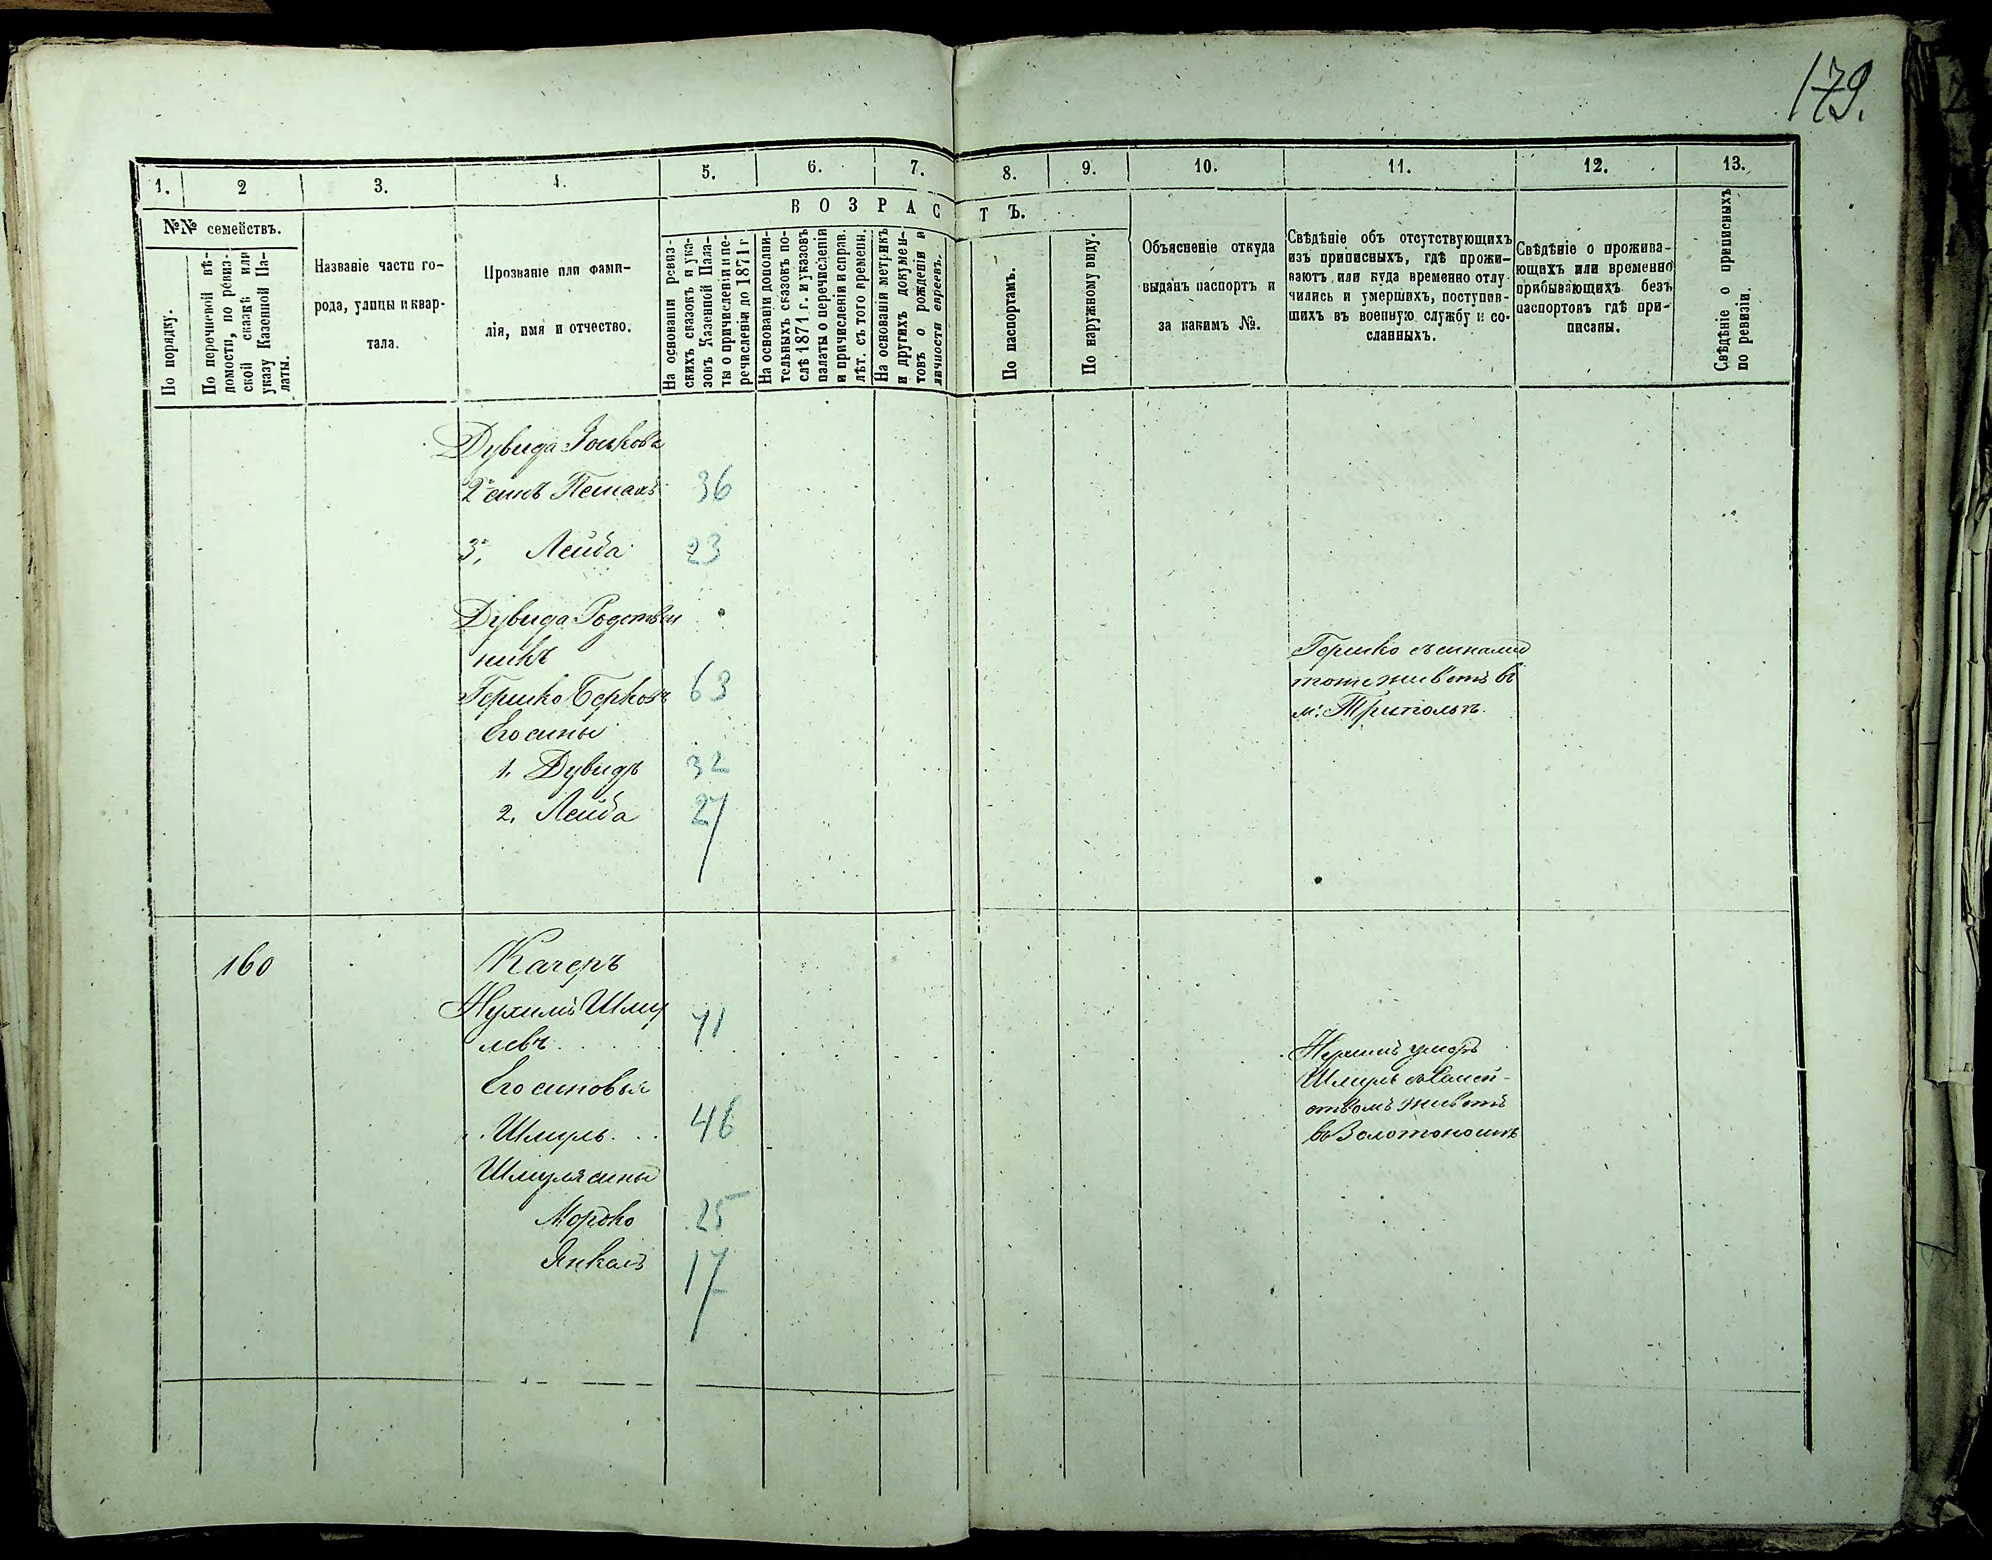 179.
1.
2
3.
4.
5.
6.
7.
8.
9.
10.
11.
12.
13.
№№ семействъ.
По порядку.
По перечневой вѣ-
домости, по ревиз-
ской сказкѣ или
указу Казенной Па-
латы.
Названіе части го-
рода, улицы и квар-
тала.
Прозваніе или фами-
лія, имя и отчество.
ВОЗРАСТЪ.
На основаніи ревиз-
скихъ сказокъ и ука-
зовъ Казенной Пала-
ты о причисленіи и пе-
речисленіи до 1871 г
На основаніи дополни-
тельныхъ сказокъ по-
слѣ 1871 г. и указовъ
палаты о перечисленіи
и причисленіи и справ.
лѣт. съ того времени.
На основаніи метрикъ
и другихъ докумен-
товъ о рожденіи и
личности евреевъ.
По паспортамъ.
По наружному виду.
Объясненіе откуда
выданъ паспортъ и
за какимъ №.
Свѣдѣніе объ отсутствующихъ
изъ приписныхъ, гдѣ прожи-
ваютъ или куда временно отлу-
чились и умершихъ, поступив-
шихъ въ военную службу и со-
сланныхъ.
Свѣдѣніе о прожива-
ющихъ или временно
прибывающихъ безъ
паспортовъ гдѣ при-
писаны.
Свѣдѣніе о приписныхъ
по ревизіи.
Дувида Іоськова
2й сынъ Пейсахъ 36
3й „ Лейба 23
Дувида Родствен
никъ
Гершко Берковъ 63
Его сины
1. Дувидъ 32
2. Лейба 27
Гершко съ синами
тоже живетъ в
м. Триполье.
160
Качеръ
Нухимъ Шму
левъ 71
Его синовья
Шмуль 46
Шмуля сины
Мордко 25
Янкель 17
Нухимъ умеръ
Шмуль съ Семей-
ствомъ живетъ
въ Золотоноше